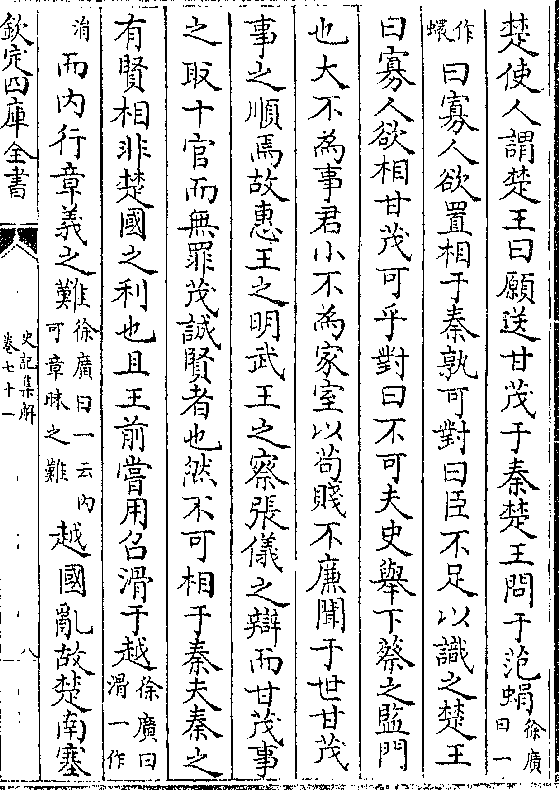 楚使人謂楚王曰願送甘茂于秦楚王問于范蜎徐廣曰一
作蠉曰寡人欲置相于秦孰可對曰臣不足以識之楚王
曰寡人欲相甘茂可乎對曰不可夫史舉下蔡之監門
也大不為事君小不為家室以苟賤不廉聞于世甘茂
事之順焉故惠王之明武王之察張儀之辯而甘茂事
之取十官而無罪茂誠賢者也然不可相于秦夫秦之
有賢相非楚國之利也且王前嘗用召滑于越徐廣曰滑一作
涓而内行章義之難徐廣曰一云内可章昧之難越國亂故楚南塞
欽定四庫全書
史記集解
卷七十一
八